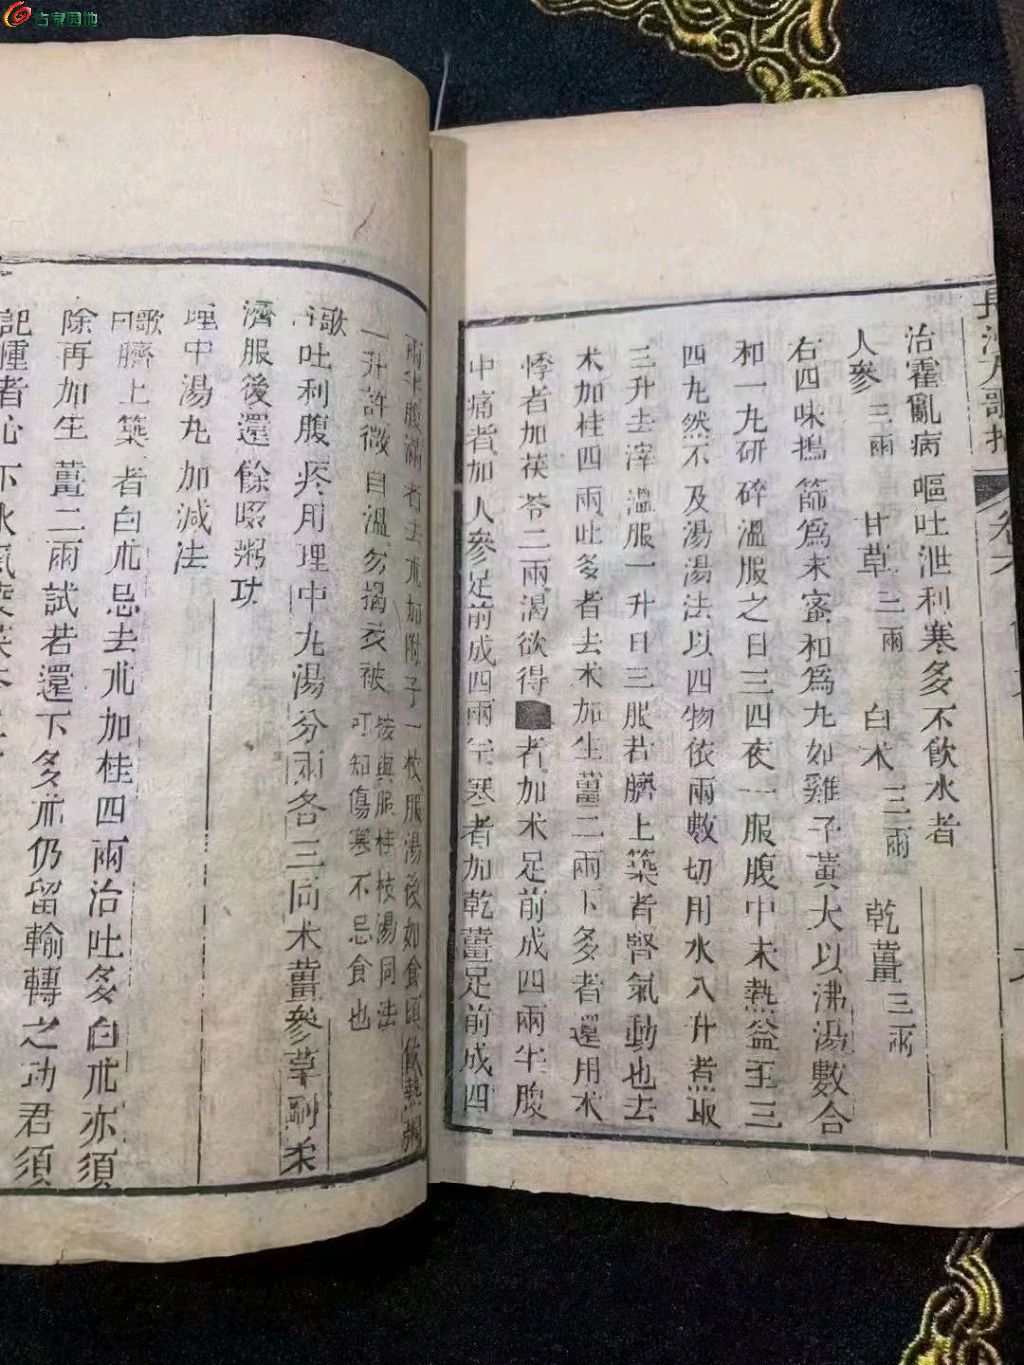 古泉园地
長沙方歌括
卷六
治霍亂病嘔吐泄利寒多不飲水者
人參三兩 甘草三兩 白术三兩 乾薑三兩
右四味擣篩爲末蜜和爲丸如雞子黃大以沸湯數合
和一丸研碎溫服之日三四夜一服腹中未熱益至三
四丸然不及湯湯法以四物依兩數切用水八升煮取
三升去滓溫服一升日三服若臍上築者腎氣動也去
术加桂四兩吐多者去术加生薑二兩下多者還用术
悸者加茯苓二兩渴欲得者加术足前成四兩半腹
中痛者加人參足前成四兩半寒者加乾薑足前成四
兩半腹滿者去朮加附子一枚服湯後如食頃飲熱粥
一升許微自溫勿揭衣被
按與服桂枝湯同法
可知傷寒不忌食也
歌
吐利腹疼用理中丸湯分兩各三同术薑參草剛柔
濟服後還餘啜粥功
理中湯丸加減法
歌
曰臍上築者白朮忌去朮加桂四兩治吐多白朮亦須
除再加生薑二兩試若還下多朮仍留輸轉之功君須
記悸者心下水氣